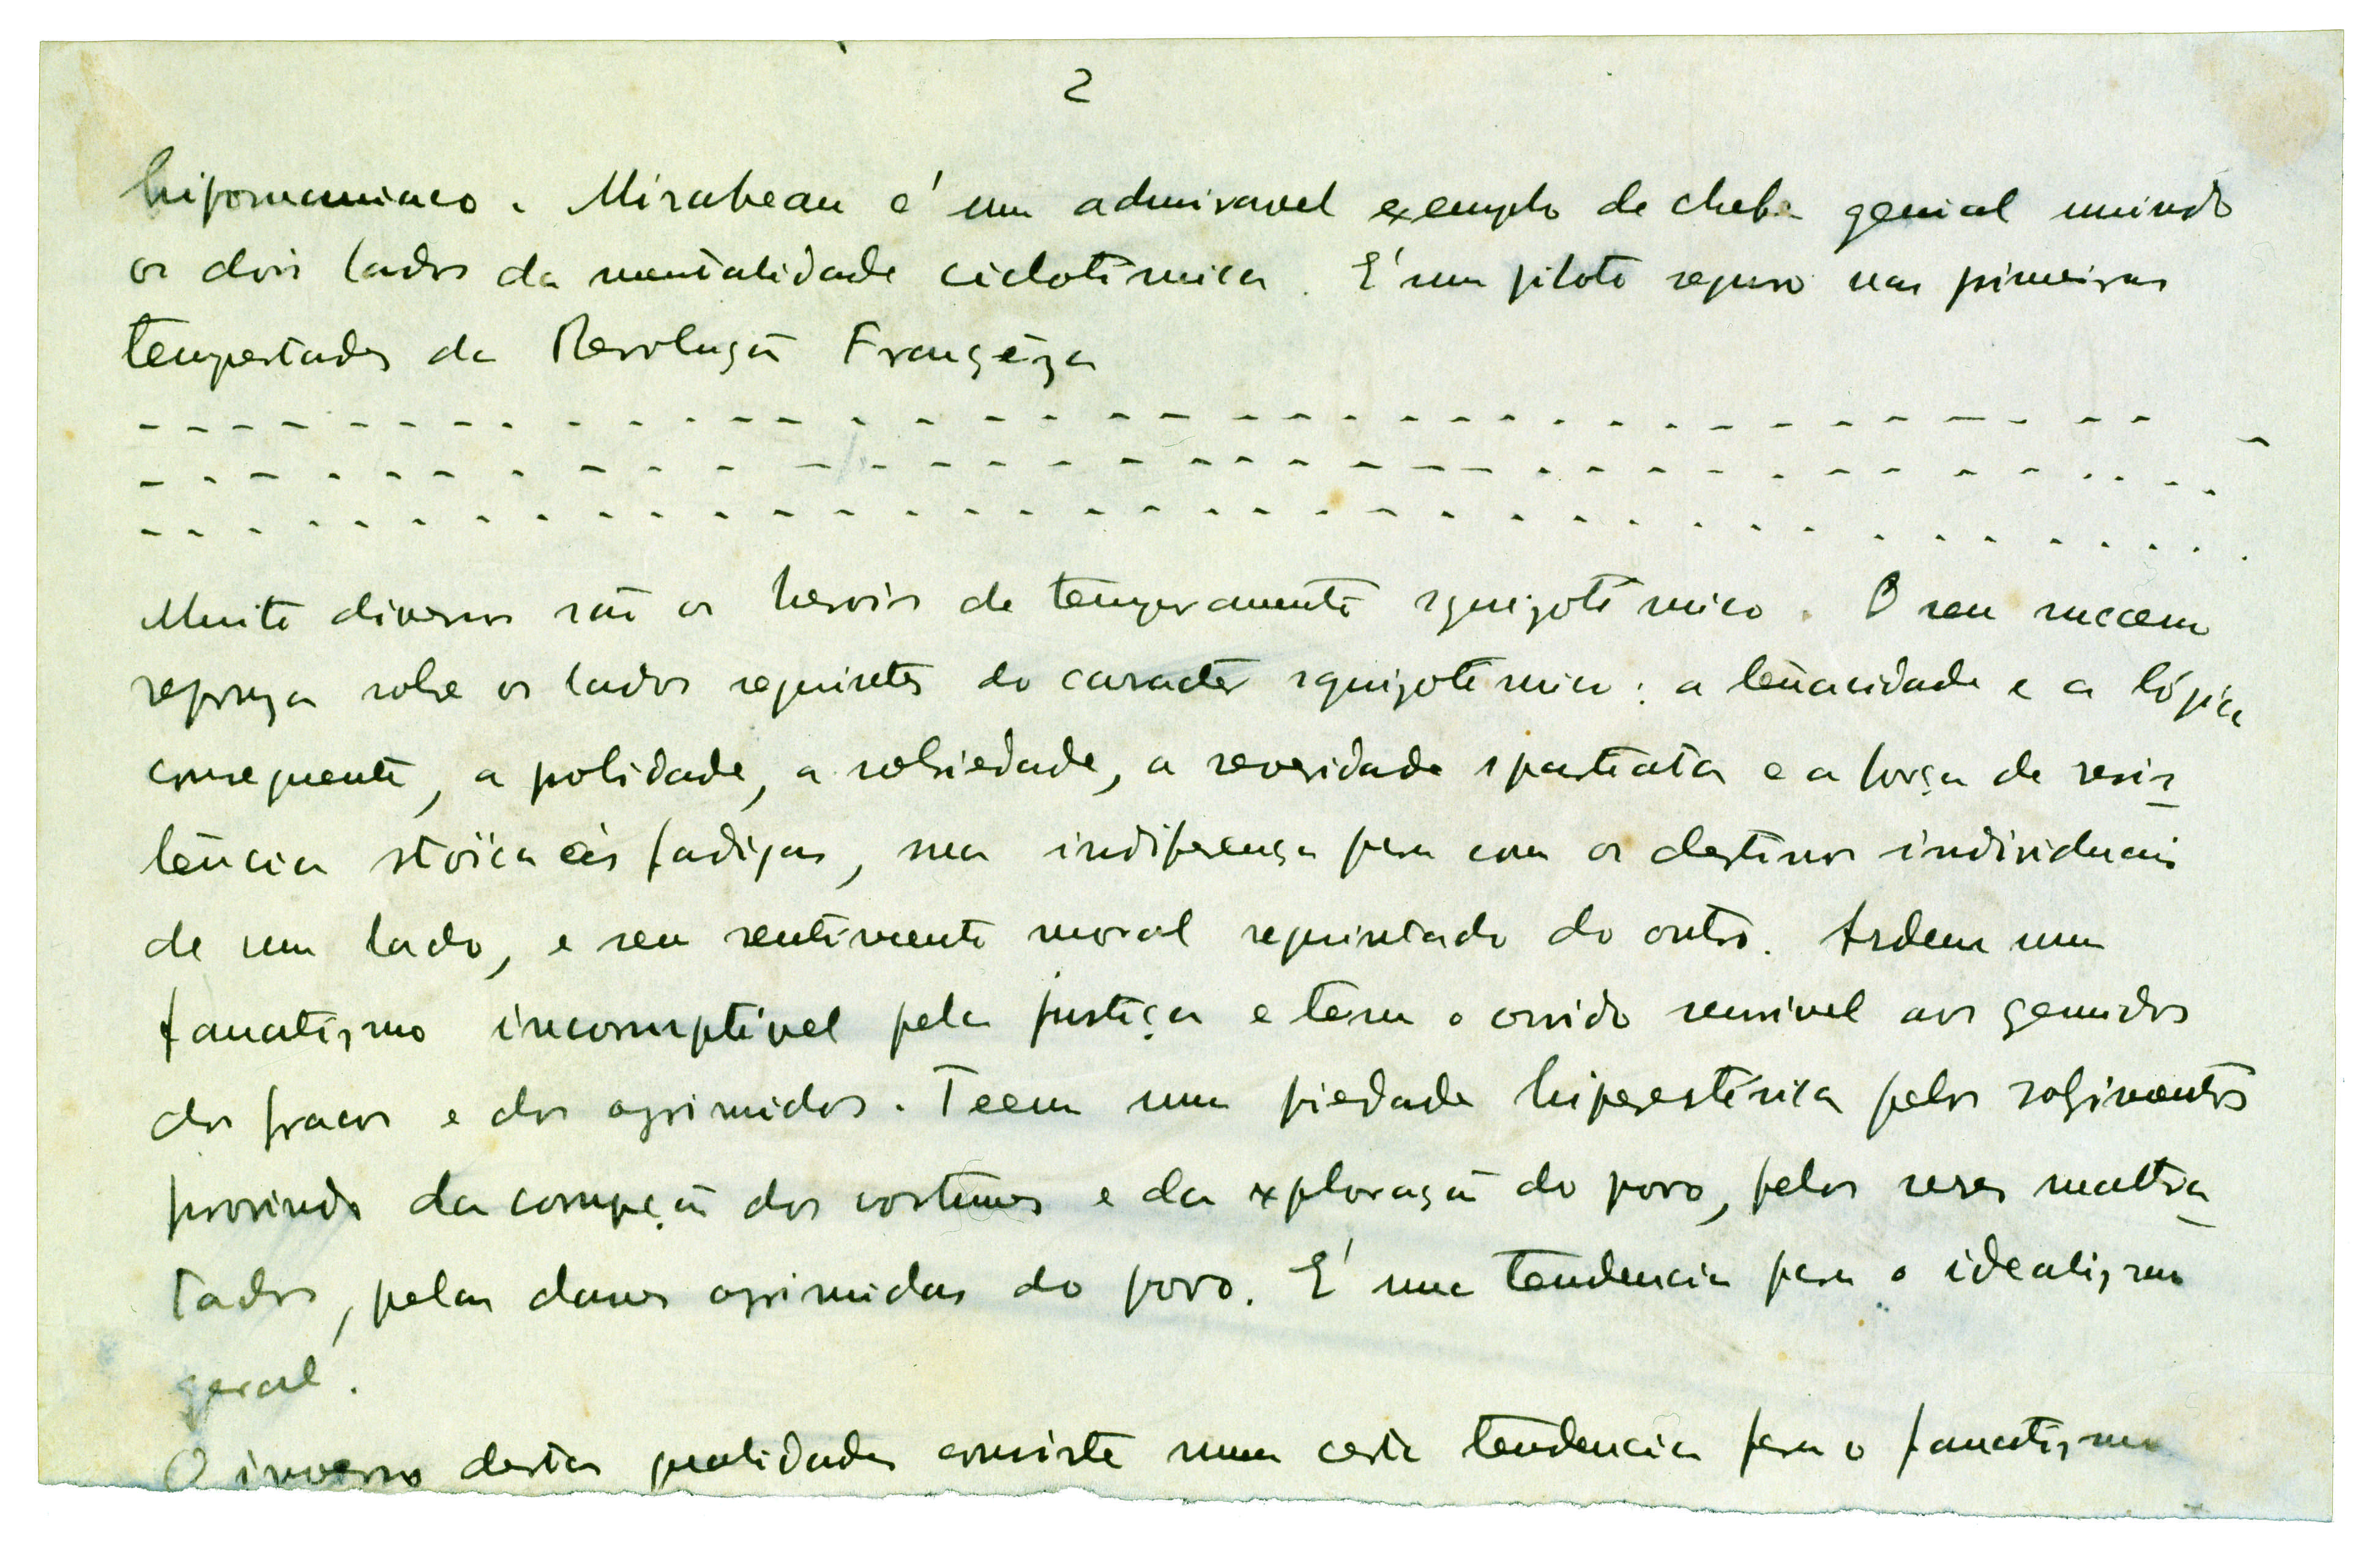 2
hipomaniaco. Mirabeau é um admiravel exemplo de chefe genial unindo
os dois lados da mentalidade ciclotímica. É um piloto seguro nas primeiras
tempestades da Revolução Françêza
Muito diversos são os herois de temperamento squizotímico. O seu sucesso
repouza sobre os lados seguintes do caracter squizotímico: a tenacidade e a lógica
consequente, a polidade, a sobriedade, a severidade spartiata e a força de resis-
tência stoïca às fadigas, sua indiferença para com os destinos individuais
de um lado, e seu sentimento moral requintado do outro. Ardem num
fanatismo incorruptivel pela justiça e têm o ouvido sensivel aos gemidos
dos fracos e dos oprimidos. Teem uma piedade hiperestésica pelos sofrimentos
provindo da corrupção dos costumes e da exploração do povo, pelos seres maltra-
tados, pelas classes oprimidas do povo. É uma tendencia para o idealismo
geral.
O inverso destas qualidades consiste numa certa tendencia para o fanatismo